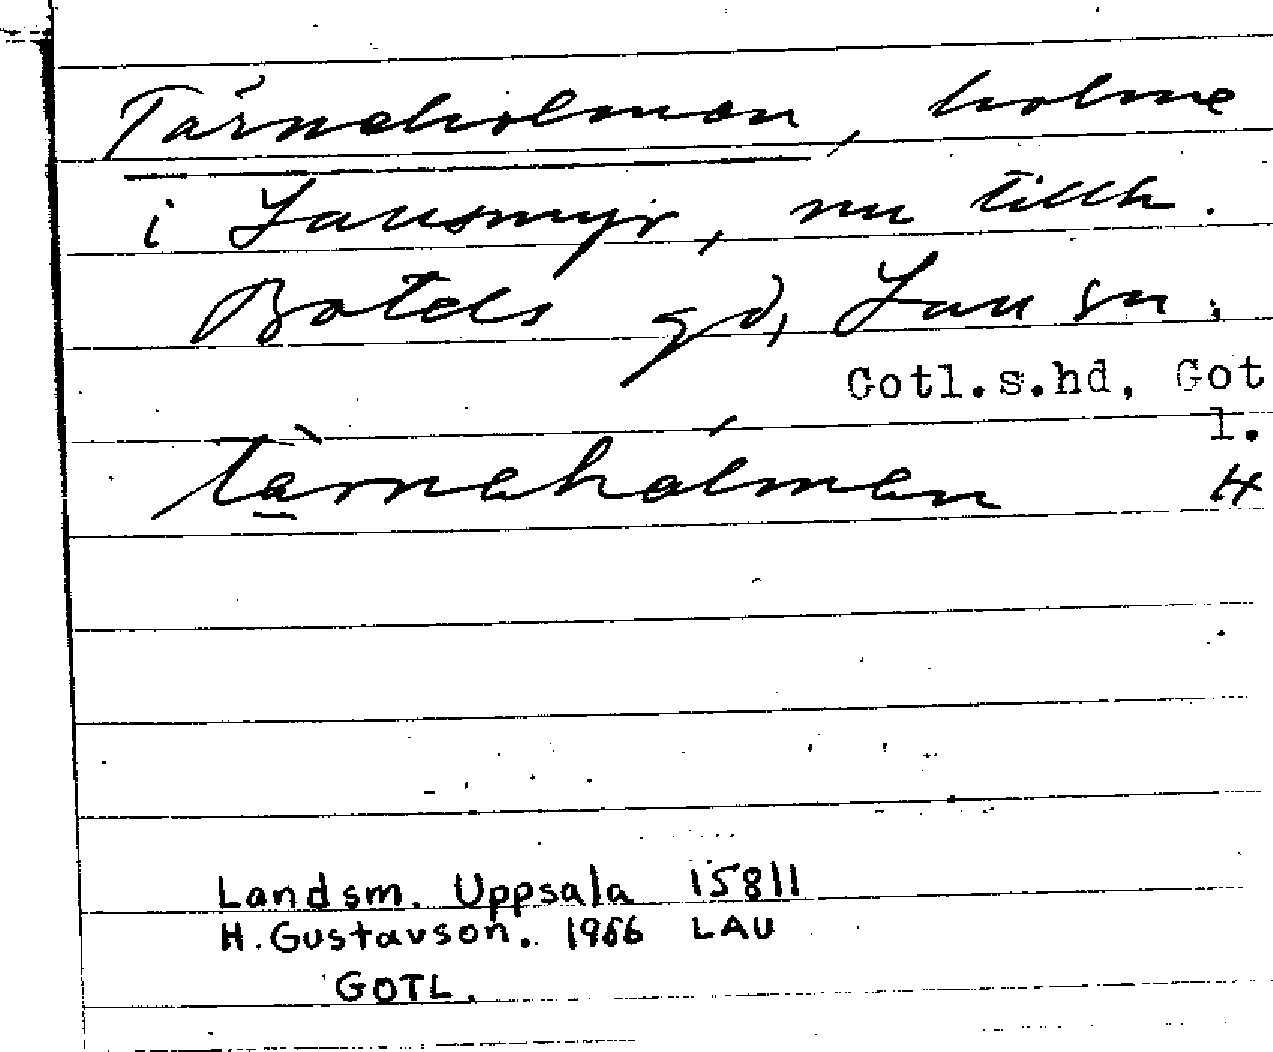 Tärneholmen, holme
i Lausmyr, nu tillh.
Botels gd, Lau sn.
Gotl.s.hd, Got
l.
tä̀rnehólmen
H
Landsm. Uppsala 15811
H. Gustavson. 1966 LAU
GOTL.